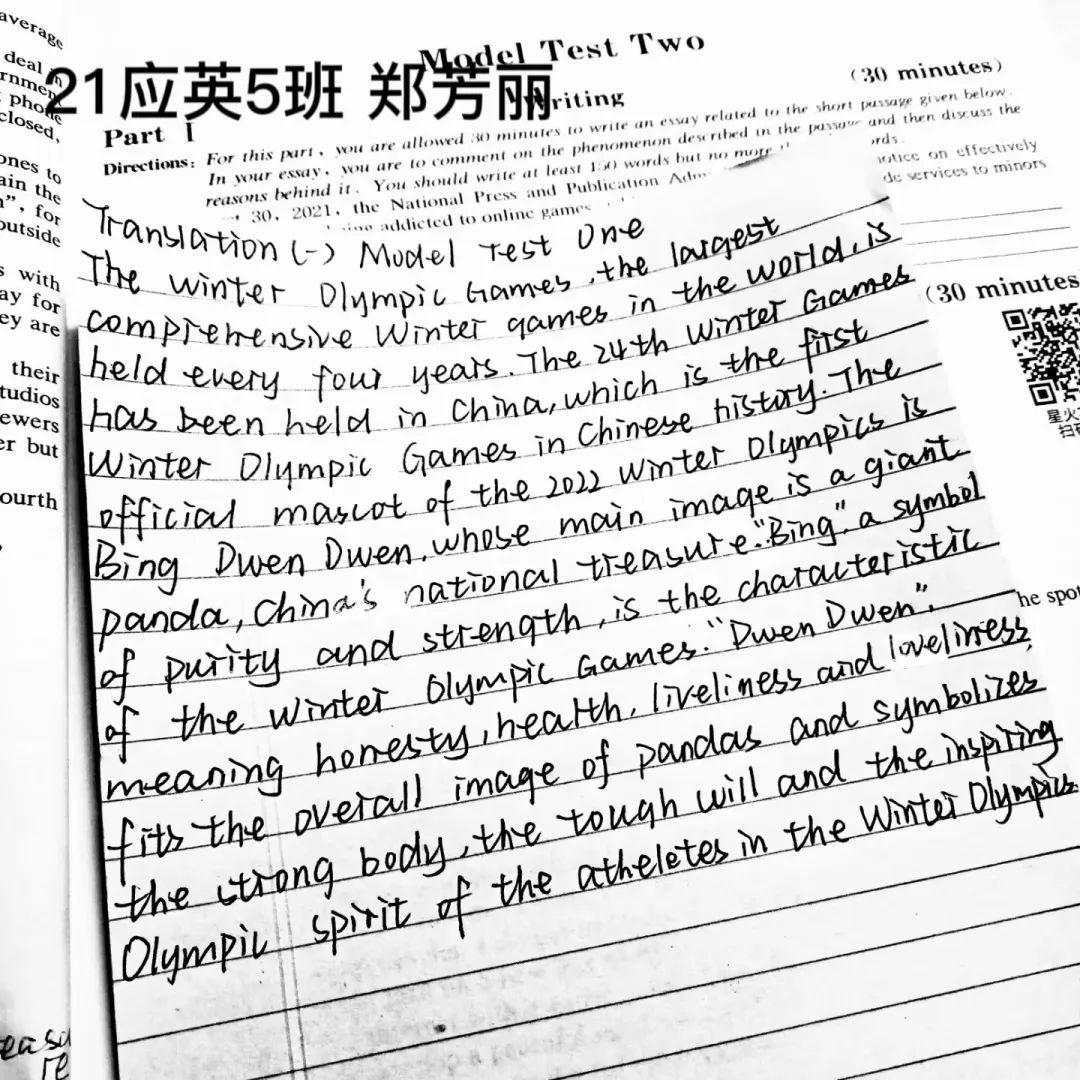 average
deal in
rnment
phone
closed,
ones to
ain the
n", for
outside
s with
ay for
ey are
their
tudios
ewers
er but
ourth
easu
re
21应英5班 郑芳丽
Model Test Two
Part I
Writing
(30 minutes)
Directions: For this part, you are allowed 30 minutes to write an essay related to the short passage given below.
In your essay, you are to comment on the phenomenon described in the passage and then discuss the
reasons behind it. You should write at least 150 words but no more words.
30, 2021, the National Press and Publication notice on effectively
addicted to online games services to minors
Translation (一) Model Test One
The Winter Olympic Games, the largest
comprehensive Winter games in the world, is
held every four years. The 24th Winter Games
has been held in China, which is the first
Winter Olympic Games in Chinese history. The
official mascot of the 2022 Winter Olympics is
Bing Dwen Dwen, whose main image is a giant
panda, China's national treasure. "Bing", a symbol
of purity and strength, is the characteristic
of the Winter Olympic Games. "Dwen Dwen",
meaning honesty, health, liveliness and loveliness,
fits the overall image of pandas and symbolizes
the strong body, the tough will and the inspiring
Olympic spirit of the atheletes in the Winter Olympics.
(30 minutes
星火
扫码
he spot